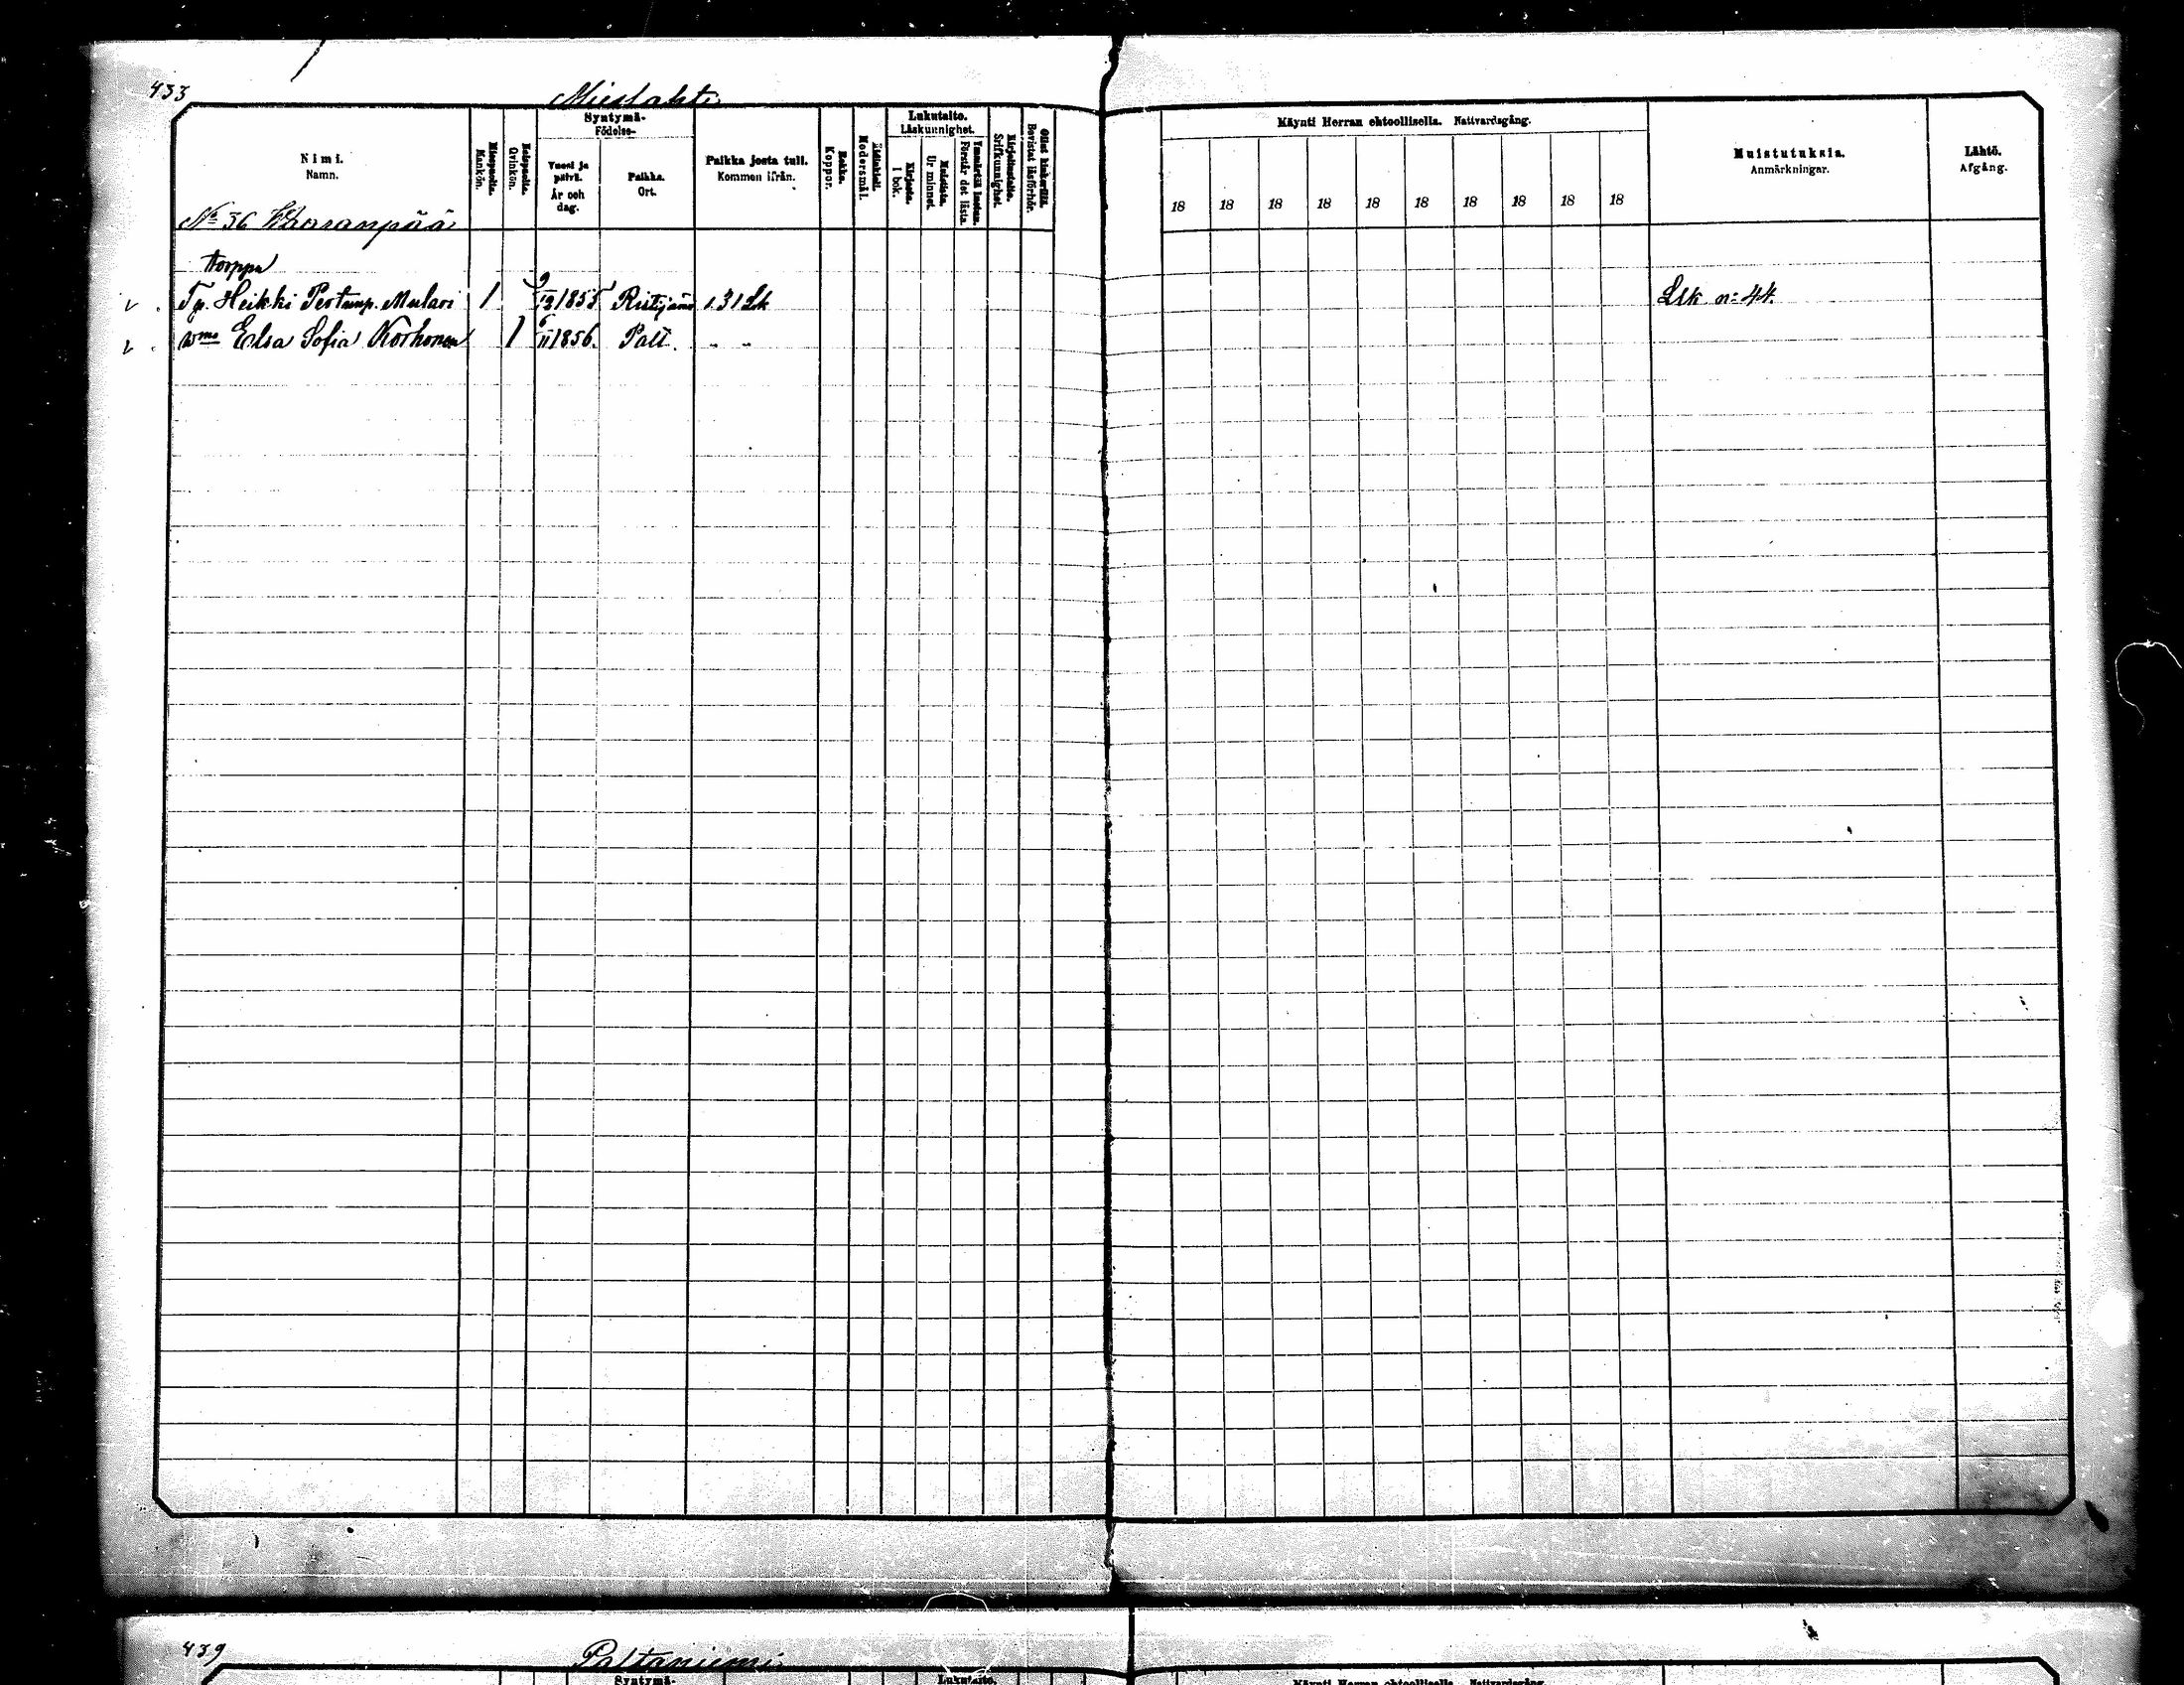 433
Mieslahti
Nimi.
Namn.
Miespuolia.
Mankön.
Naispuolia.
Qvinkön.
Syntymä-
Födelse-
Vuosi ja päivä.
År och dag.
Paikka.
Ort.
Paikka josta tuli.
Kommen ifrån.
Rokko.
Koppor.
Äidinkieli.
Modersmål.
Lukutaito.
Läskunnighet.
Kirjasta.
I bok.
Muistista.
Ur minnet.
Ymmärtää luetun.
Förstår det lästa.
Kirjoitustaito.
Skrifkunnighet.
Ollut kinkerillä.
Bevistat läsförhör.
Käynti Herran ehtoollisella. Nattvardsgång.
18 18 18 18 18 18 18 18 18 18
Muistutuksia.
Anmärkningar.
Lähtö.
Afgång.
No 36 Waaranpää
torppa
Tp. Heikki Pertunp. Mulari 1 9/12 1855 Ristijärvi s. 31 Lk Lstk n:o 44
wmo Elsa Sofia Korhonen 1 6/11 1856. Palt. „ „
439
Paltaniemi
Syntymä-
Lukutaito.
Käynti Herran ehtoollisella. Nattvardsgång.